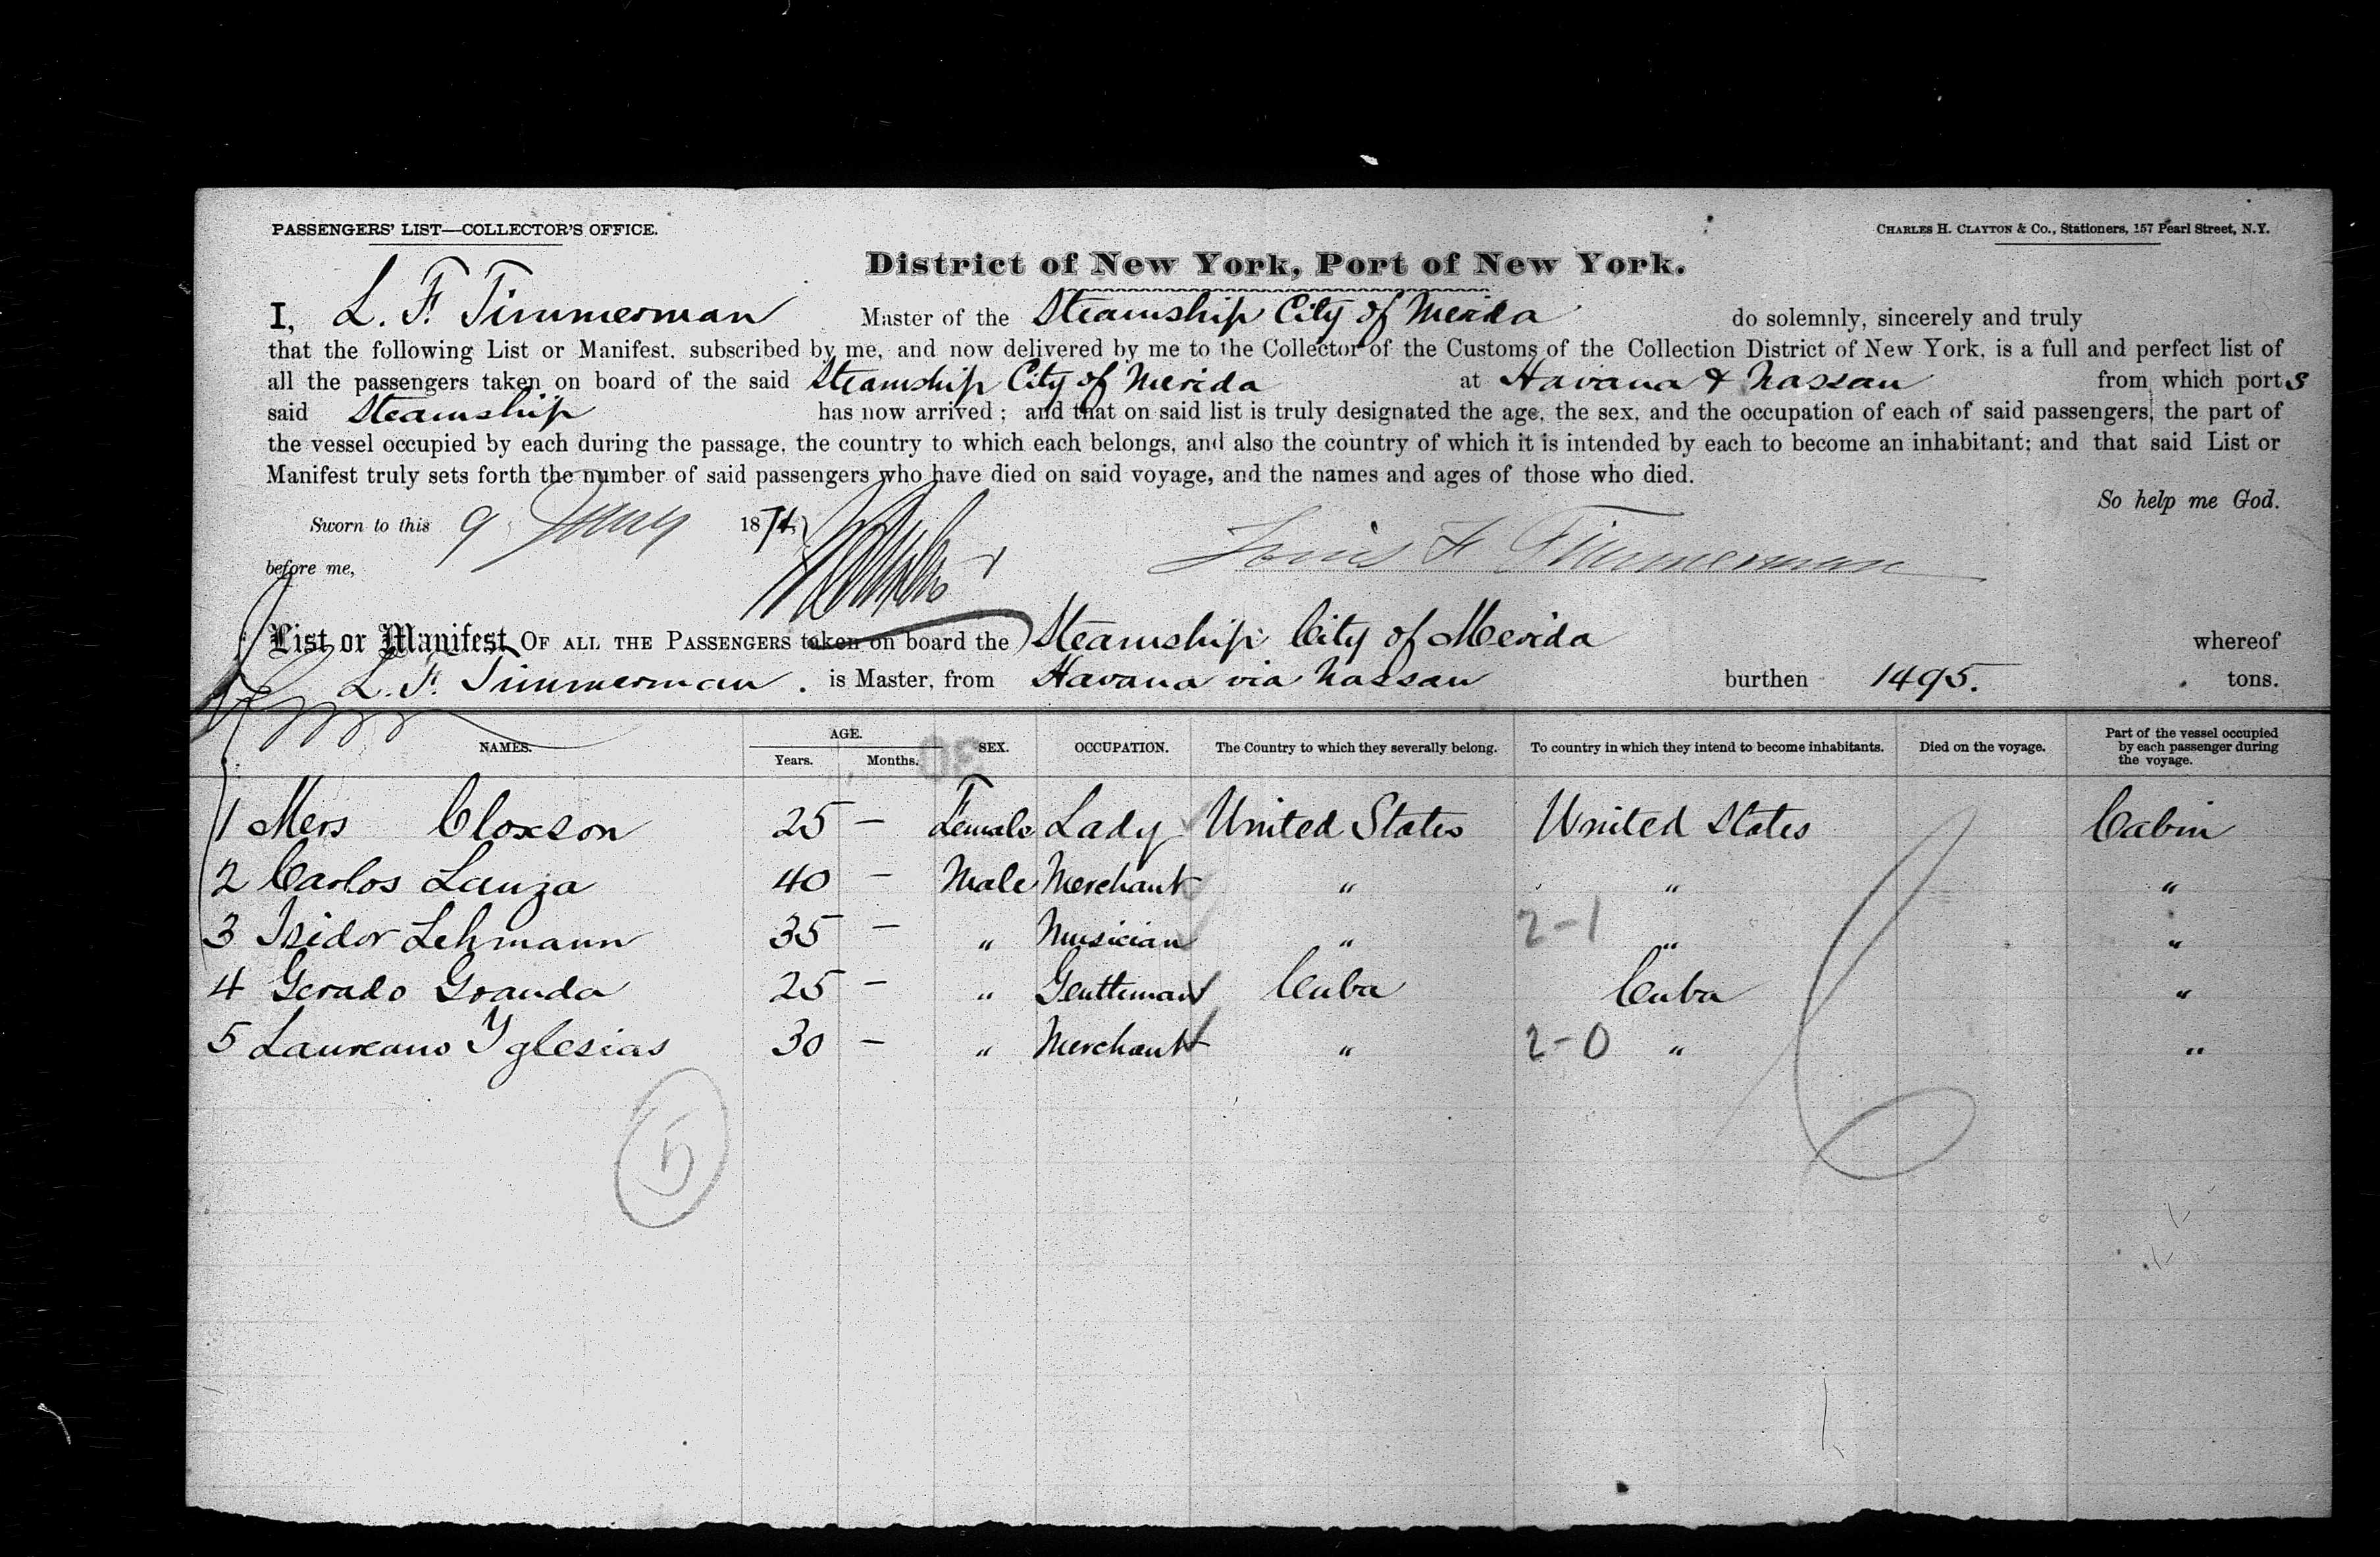 PASSENGERS' LIST—COLLECTOR'S OFFICE.
CHARLES H. CLAYTON & Co., Stationers, 157 Pearl Street, N.Y.
District of New York, Port of New York.
I, L. F. Timmerman Master of the Steamship City of Merida do solemnly, sincerely and truly
that the following List or Manifest, subscribed by me, and now delivered by me to the Collector of the Customs of the Collection District of New York, is a full and perfect list of
all the passengers taken on board of the said Steamship City of Merida at Havana & Nassau from which ports
said Steamship has now arrived; and that on said list is truly designated the age, the sex, and the occupation of each of said passengers, the part of
the vessel occupied by each during the passage, the country to which each belongs, and also the country of which it is intended by each to become an inhabitant; and that said List or
Manifest truly sets forth the number of said passengers who have died on said voyage, and the names and ages of those who died.
So help me God.
Sworn to this 9 Jany 1874
before me,
Louis F Timmerman
List or Manifest OF ALL THE PASSENGERS taken on board the Steamship City of Merida whereof
L. F. Timmerman. is Master, from Havana via Nassau burthen 1495. tons.
NAMES. AGE. Years. Months. SEX. OCCUPATION. The Country to which they severally belong. To country in which they intend to become inhabitants. Died on the voyage. Part of the vessel occupied by each passenger during the voyage.
1 Mers Cloxson 25 — Female Lady United States United States Cabin
2 Carlos Lanza 40 — Male Merchant " " "
3 Isidor Lehmann 35 — " Musician " 2-1 " "
4 Gerado Granda 25 — " Gentleman Cuba Cuba "
5 Laureano Yglesias 30 — " Merchant " 2-0 " "
5